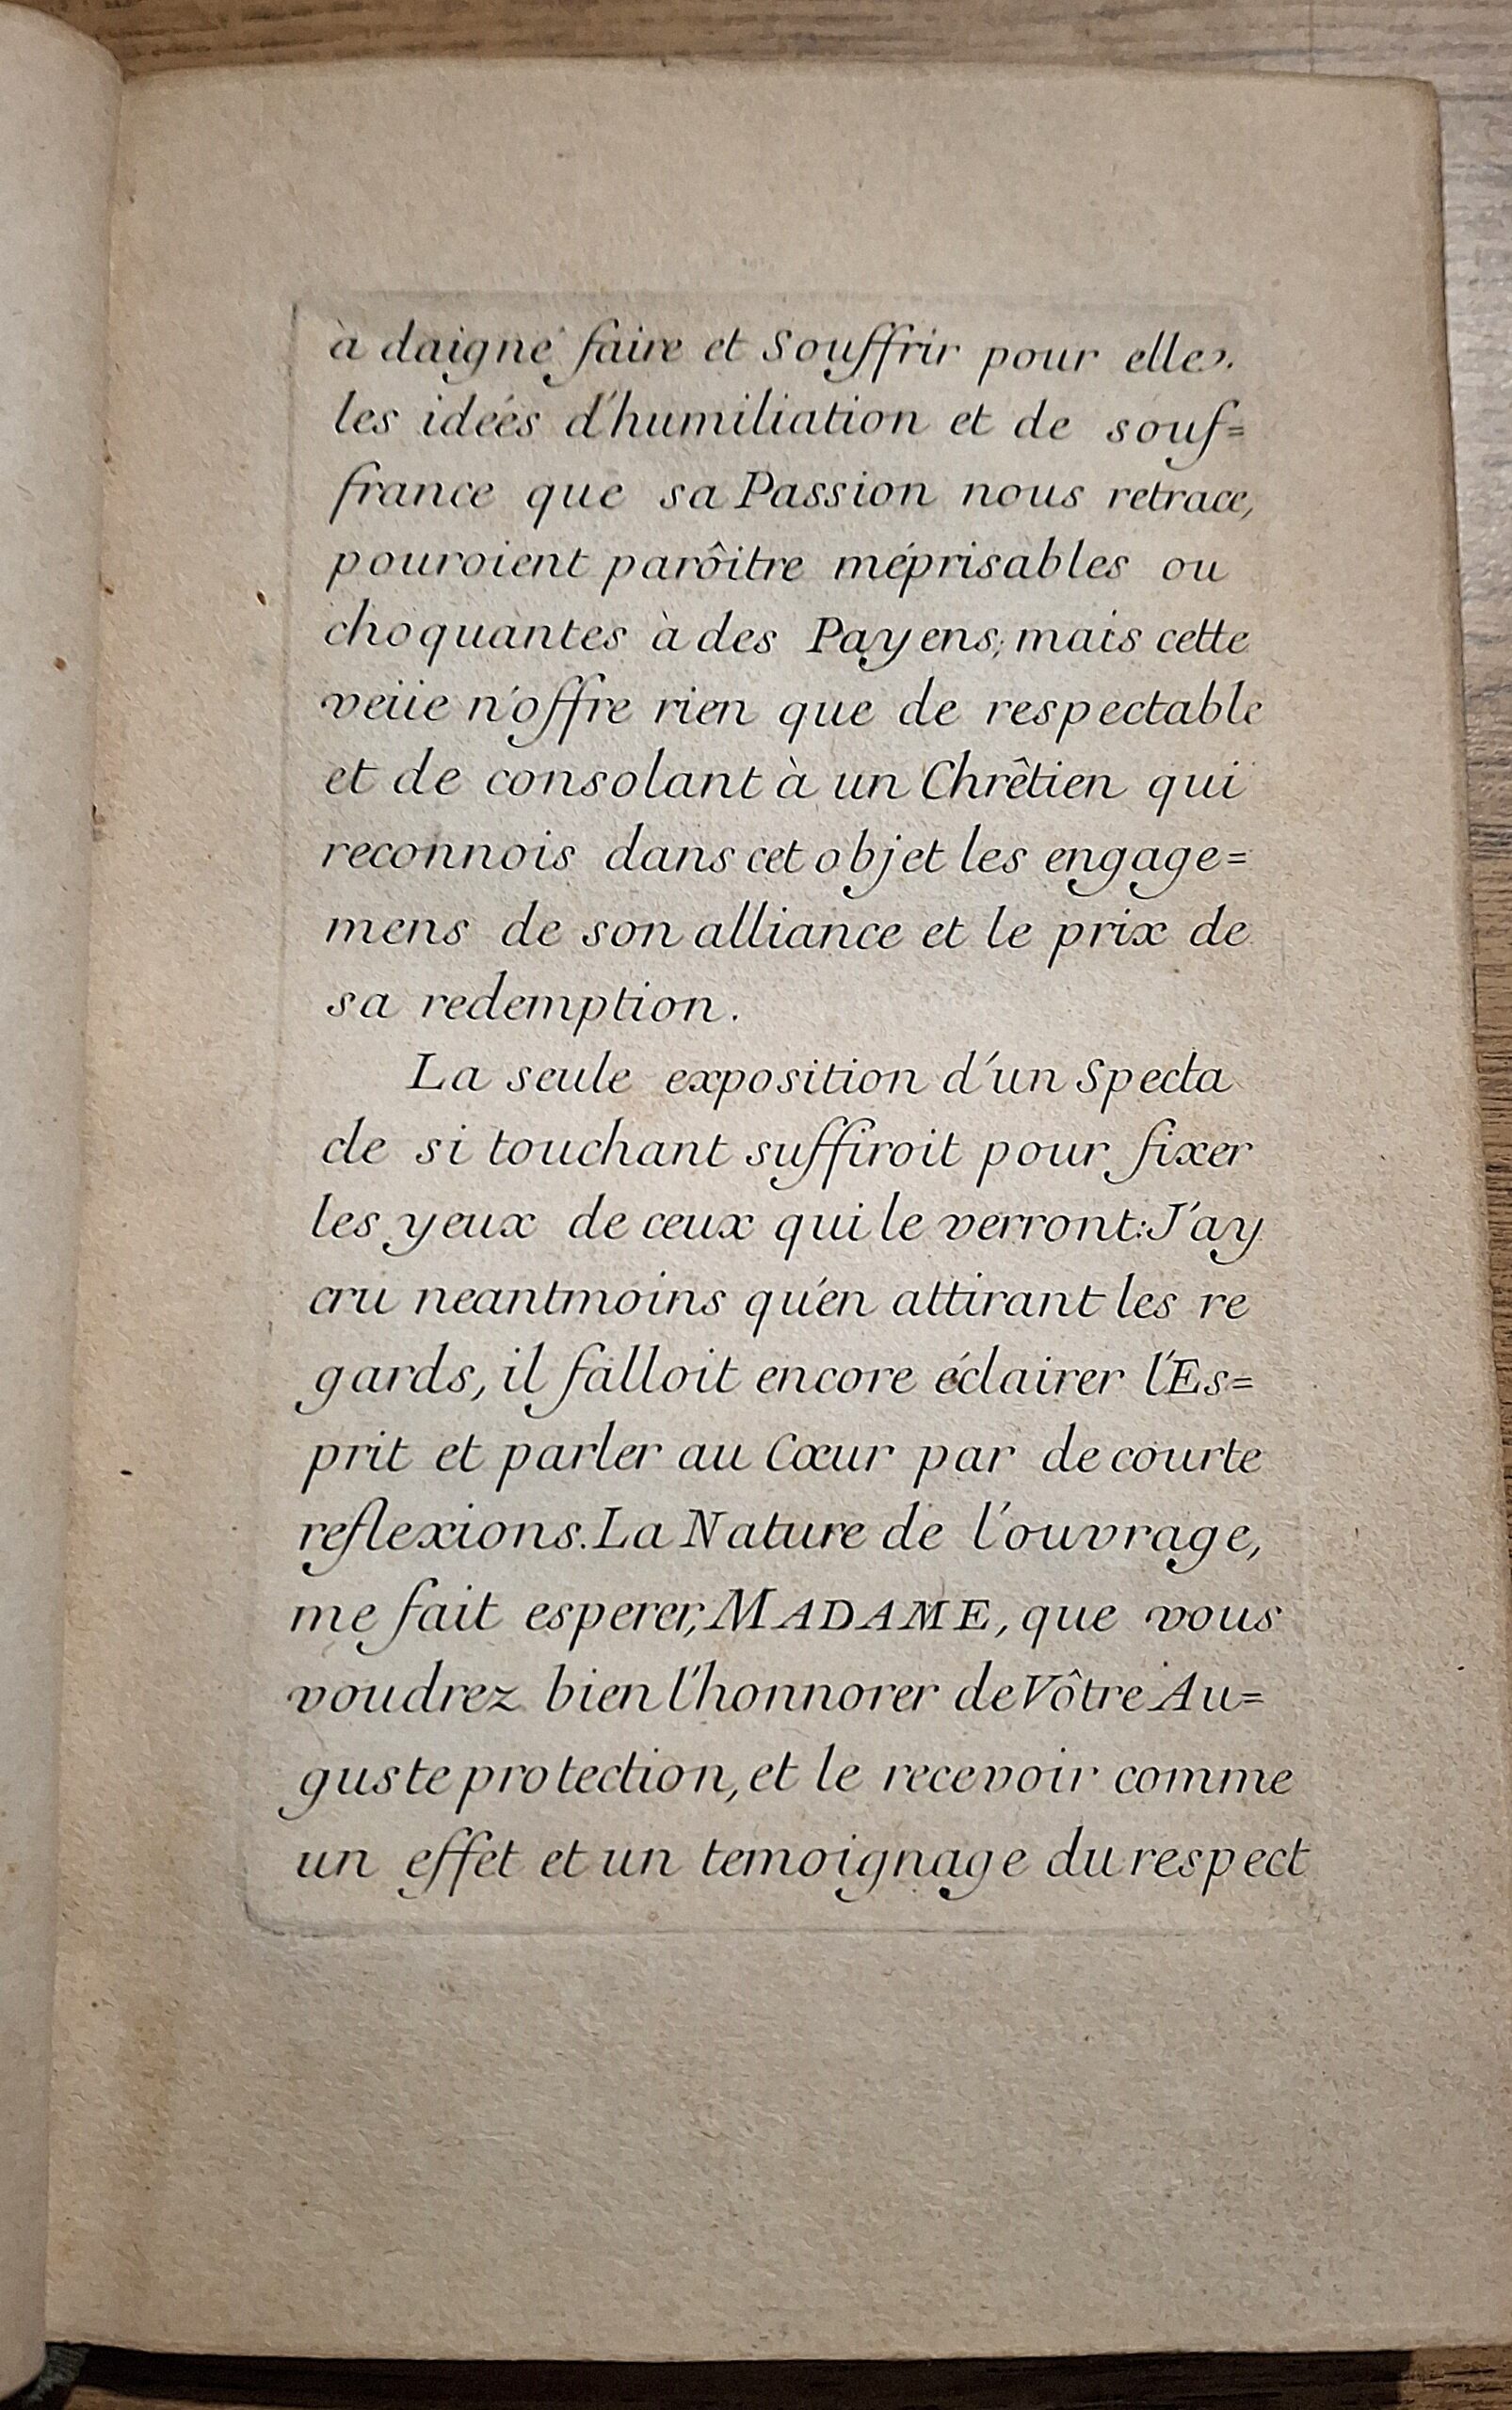 à daigné faire et Souffrir pour elle.
les ideés d'humiliation et de souf=
france que sa Passion nous retrace,
pouroient parôitre méprisables ou
choquantes à des Payens; mais cette
veüe n'offre rien que de respectable
et de consolant à un Chrêtien qui
reconnois dans cet objet les engage=
mens de son alliance et le prix de
sa redemption.
La seule exposition d'un Specta
cle si touchant suffiroit pour fixer
les yeux de ceux qui le verront: J'ay
cru neantmoins qu'en attirant les re
gards, il falloit encore éclairer l'Es=
prit et parler au Cœur par de courte
reflexions. La Nature de l'ouvrage,
me fait esperer, MADAME, que vous
voudrez bien l'honnorer de Vôtre Au=
guste protection, et le recevoir comme
un effet et un temoignage du respect